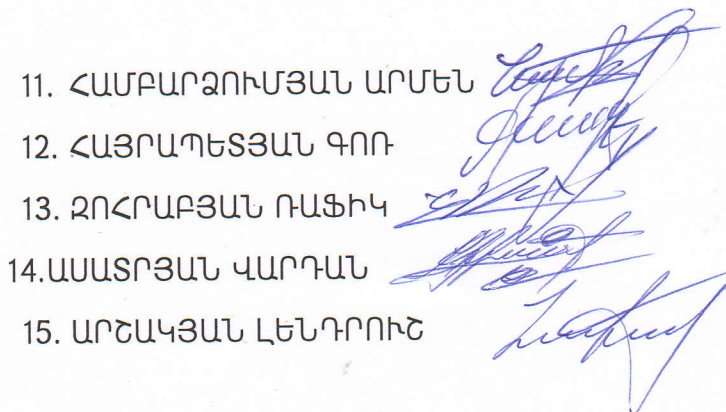 11. ՀԱՄԲԱՐՁՈՒՄՅԱՆ ԱՐՄԵՆ
12. ՀԱՅՐԱՊԵՏՅԱՆ ԳՈՌ
13. ԶՈՀՐԱԲՅԱՆ ՌԱՖԻԿ
14.ԱՍԱՏՐՅԱՆ ՎԱՐԴԱՆ
15. ԱՐՇԱԿՅԱՆ ԼԵՆԴՐՈՒՇ